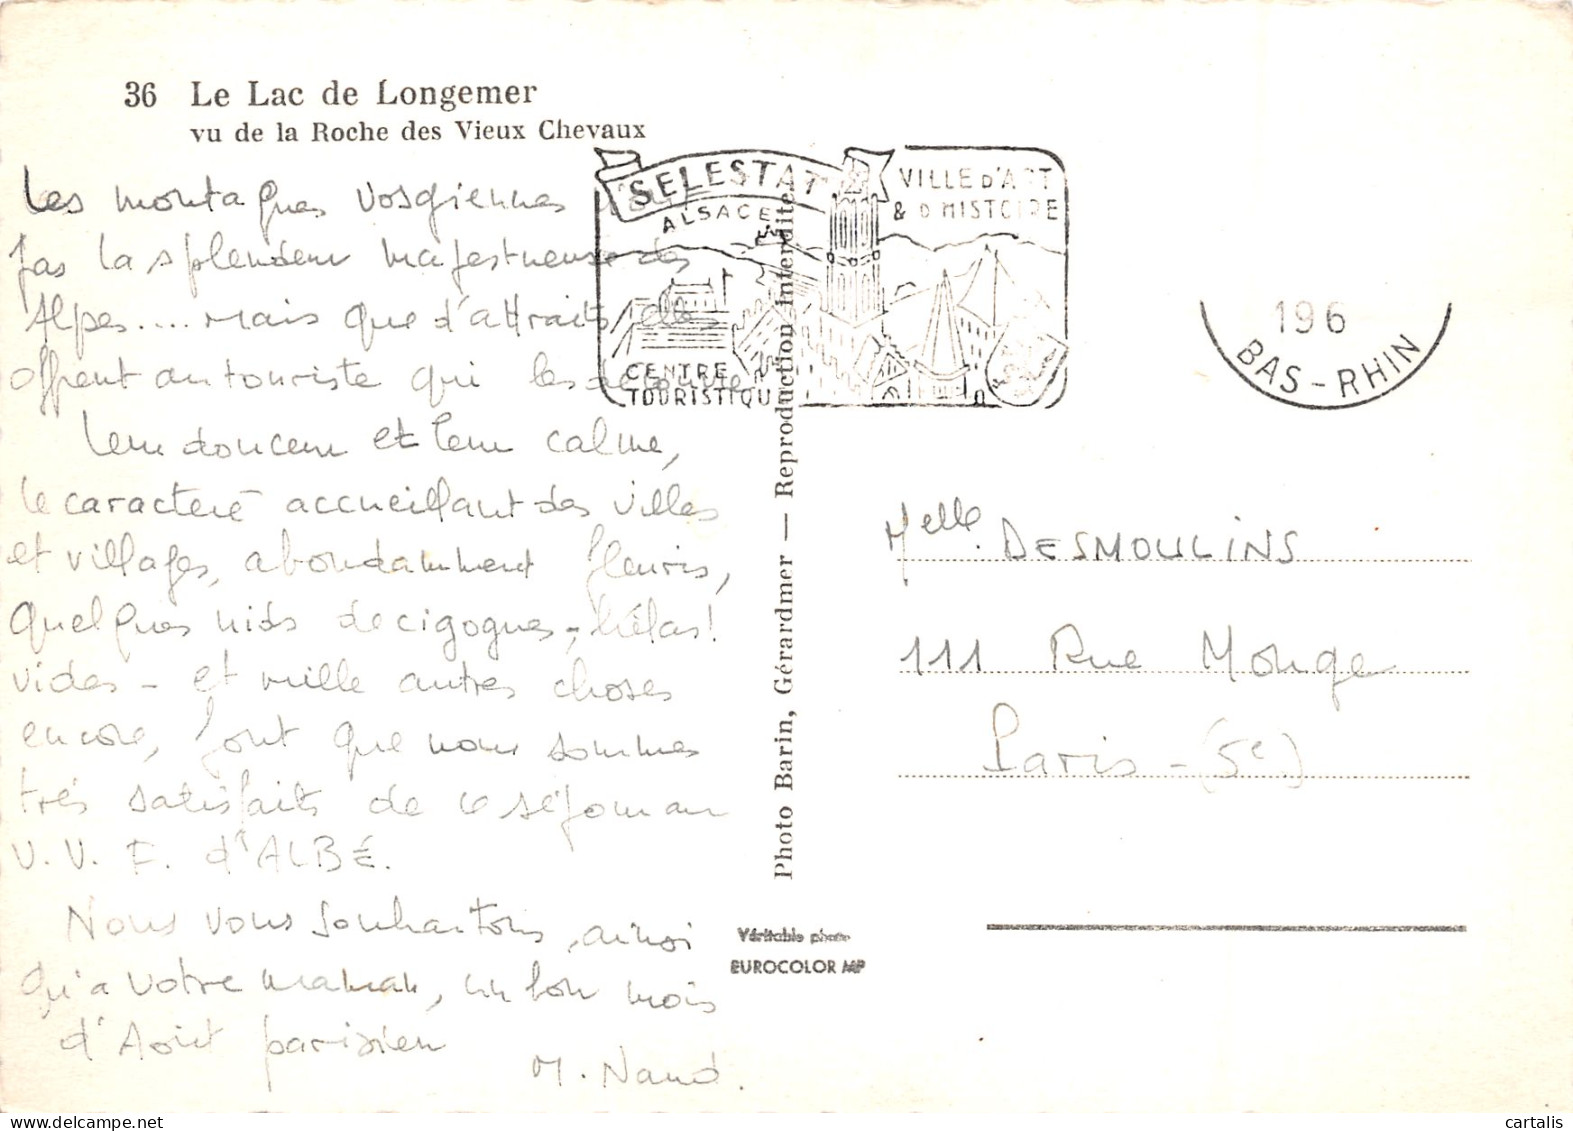 36 Le Lac de Longemer
vu de la Roche des Vieux Chevaux
Les montagnes vosgiennes n'ont
pas la splendeur majestueuse des
Alpes.... Mais que d'attraits elles
offrent au touriste qui les découvre
leur douceur et leur calme,
le caractère accueillant des villes
et villages, abondamment fleuris,
quelques nids de cigognes, - hélas!
vides - et mille autres choses
encore, font que nous sommes
très satisfaits de ce séjour au
V.V.F. d'ALBÉ.
Nous vous souhaitons, ainsi
qu'à votre maman, un bon mois
d'Août parisien
M. Naud.
SELESTAT
ALSACE
VILLE D'ART
& D'HISTOIRE
CENTRE
TOURISTIQUE
196
BAS-RHIN
Photo Barin, Gérardmer — Reproduction interdite
Véritable photo
EUROCOLOR MP
Melle. DESMOULINS
111 Rue Monge
Paris - (5e)
cartalis